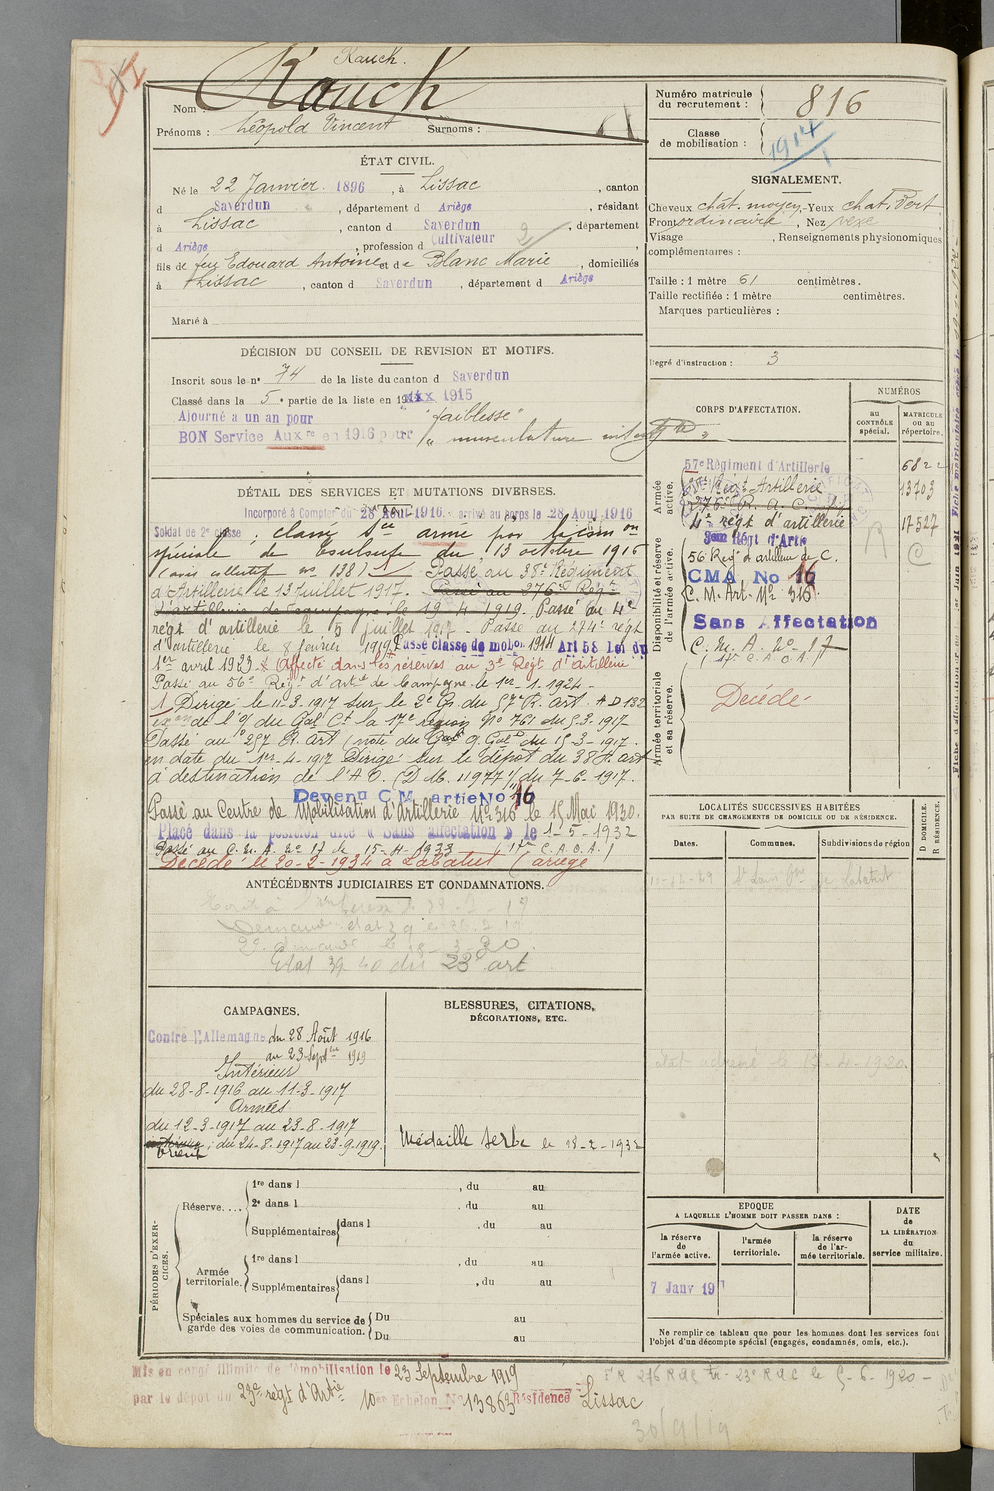 Rauch.
Nom : Rauch
Prénoms : Léopold Vincent Surnoms :
Numéro matricule du recrutement : 816
Classe de mobilisation : 1914
ÉTAT CIVIL.
Né le 22 Janvier 1896, à Lissac, canton
d Saverdun, département d Ariège, résidant
à Lissac, canton d Saverdun, département
d Ariège, profession d Cultivateur 2
fils de feu Edouard Antoine et de Blanc Marie, domiciliés
à Lissac, canton d Saverdun, département d Ariège
Marié à
SIGNALEMENT.
Cheveux chât. moyen, Yeux chat. Vert
Front ordinaire, Nez vexe
Visage , Renseignements physionomiques
complémentaires :
Taille : 1 mètre 61 centimètres.
Taille rectifiée : 1 mètre centimètres.
Marques particulières :
Degré d'instruction : 3
DÉCISION DU CONSEIL DE REVISION ET MOTIFS.
Inscrit sous le n° 74 de la liste du canton d Saverdun
Classé dans la 5e partie de la liste en 1915
Ajourné a un an pour "faiblesse"
BON Service Auxre en 1916 pour " musculature
DÉTAIL DES SERVICES ET MUTATIONS DIVERSES.
Incorporé à Compter du 28 Aout 1916 arrivé au corps le 28 Aout 1916
Soldat de 2e classe ; classé Sce armé par la comon
spéciale de du 13 octobre 1916
(avis collectif no 138) 1 Passé au 38e Régiment
d'Artillerie le 13 juillet 1917. Passé au 276e Régt
d'artillerie de campagne le 19-4-1919. Passé au 4e
regt d'artillerie le 5 juillet 1917. Passé au 274e regt
d'artillerie le 8 février 1919. Passé classe de mobon 1914 Art 58 loi du
1er avril 1923. Affecté dans les réserves au 3e Regt d'artillerie
Passé au 56e Régt d'arte de Campagne le 1er-1-1924-
1 Dirigé le 11-3-1917 sur le 2e Gr du 57e R. art. AD 132
exon de l'o/ du Gal Ct la 17e region No 761 du 5.3.1917
Passé au 257 R. Art (note du Gd Q. Gal du 15-3-1917.
en date du 1er-4-1917 Dirigé sur le dépôt du 38 R. art
à destination de l'AO. (D.M. 11977 1/ du 7-6-1917.
Devenu C.M. artie No 16
Passé au Centre de Mobilisation d'Artillerie No 316 le 15 Mai 1930.
Placé dans la position dite « Sans affectation » le 1-5-1932
Passé au C.M.A. No 17 le 15-11-1933 (1re C.A.O.A.)
Décédé le 20-2-1934 à Labatut (ariège
CORPS D'AFFECTATION.
NUMÉROS
au CONTRÔLE spécial.
MATRICULE ou au répertoire.
Armée active.
57e Régiment d'Artillerie 6822
Regt Artillerie 13703
276e R.A.C.
4e regt d'artillerie 17527
Disponibilité et réserve de l'armée active.
3em Régt d'Artie
56 Regt d'artillerie de C.
CMA No 16
C. M. Art. No 316
Sans Affectation
C. M. A. No 17
(1re C.A.O.A.)
Armée territoriale et sa réserve.
Décédé
LOCALITÉS SUCCESSIVES HABITÉES
PAR SUITE DE CHANGEMENTS DE DOMICILE OU DE RÉSIDENCE.
Dates. Communes. Subdivisions de région
D DOMICILE. R RÉSIDENCE.
ANTÉCÉDENTS JUDICIAIRES ET CONDAMNATIONS.
Etat 39-40 du 23e art
CAMPAGNES.
Contre l'Allemagne du 28 Août 1916
au 23 Septbre 1919
Intérieur
du 28-8-1916 au 11-3-1917
Armées
du 12-3-1917 au 23-8-1917
Orient ; du 24-8-1917 au 23-9-1919.
BLESSURES, CITATIONS,
DÉCORATIONS, ETC.
Médaille Serbe le 18-2-1932
PÉRIODES D'EXERCICES.
Réserve....
1re dans l , du au
2e dans l , du au
Supplémentaires dans l , du au
Armée territoriale.
1re dans l , du au
Supplémentaires dans l , du au
Spéciales aux hommes du service de garde des voies de communication.
Du au
Du au
EPOQUE
A LAQUELLE L'HOMME DOIT PASSER DANS :
la réserve de l'armée active.
l'armée territoriale.
la réserve de l'armée territoriale.
DATE de LA LIBÉRATION du service militaire.
7 Janv 19
Ne remplir ce tableau que pour les hommes dont les services font
l'objet d'un décompte spécial (engagés, condamnés, omis, etc.).
Mis en congé illimité de démobilisation le 23 Septembre 1919
par le dépôt du 23e regt d'Artie 10er Echelon No 13863 Résidence Lissac
FR 276 RAC tr. 23e RAC le 5-6-1920-
30/9/19